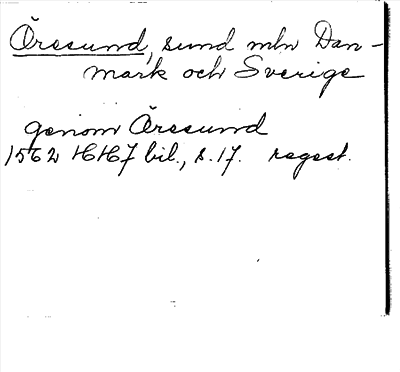 Öresund, sund mln Dan-
mark och Sverige
genom Öresund
1562 HH7 bil., s. 17. regest.